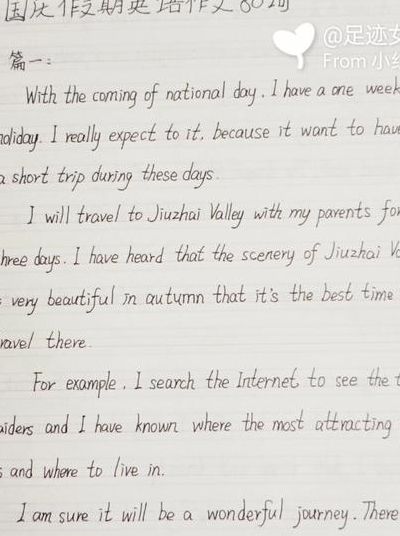 国庆假期英语作文80词
@足迹
From 小红
篇一:
With the coming of national day. I have a one week
holiday. I really expect to it, because it want to have
a short trip during these days.
I will travel to Jiuzhai Valley with my parents for
three days. I have heard that the scenery of Jiuzhai Va
s very beautiful in autumn that it's the best time
travel there.
For example, I search the Internet to see the t
aiders and I have known where the most attracting
s and where to live in.
I am sure it will be a wonderful journey. There